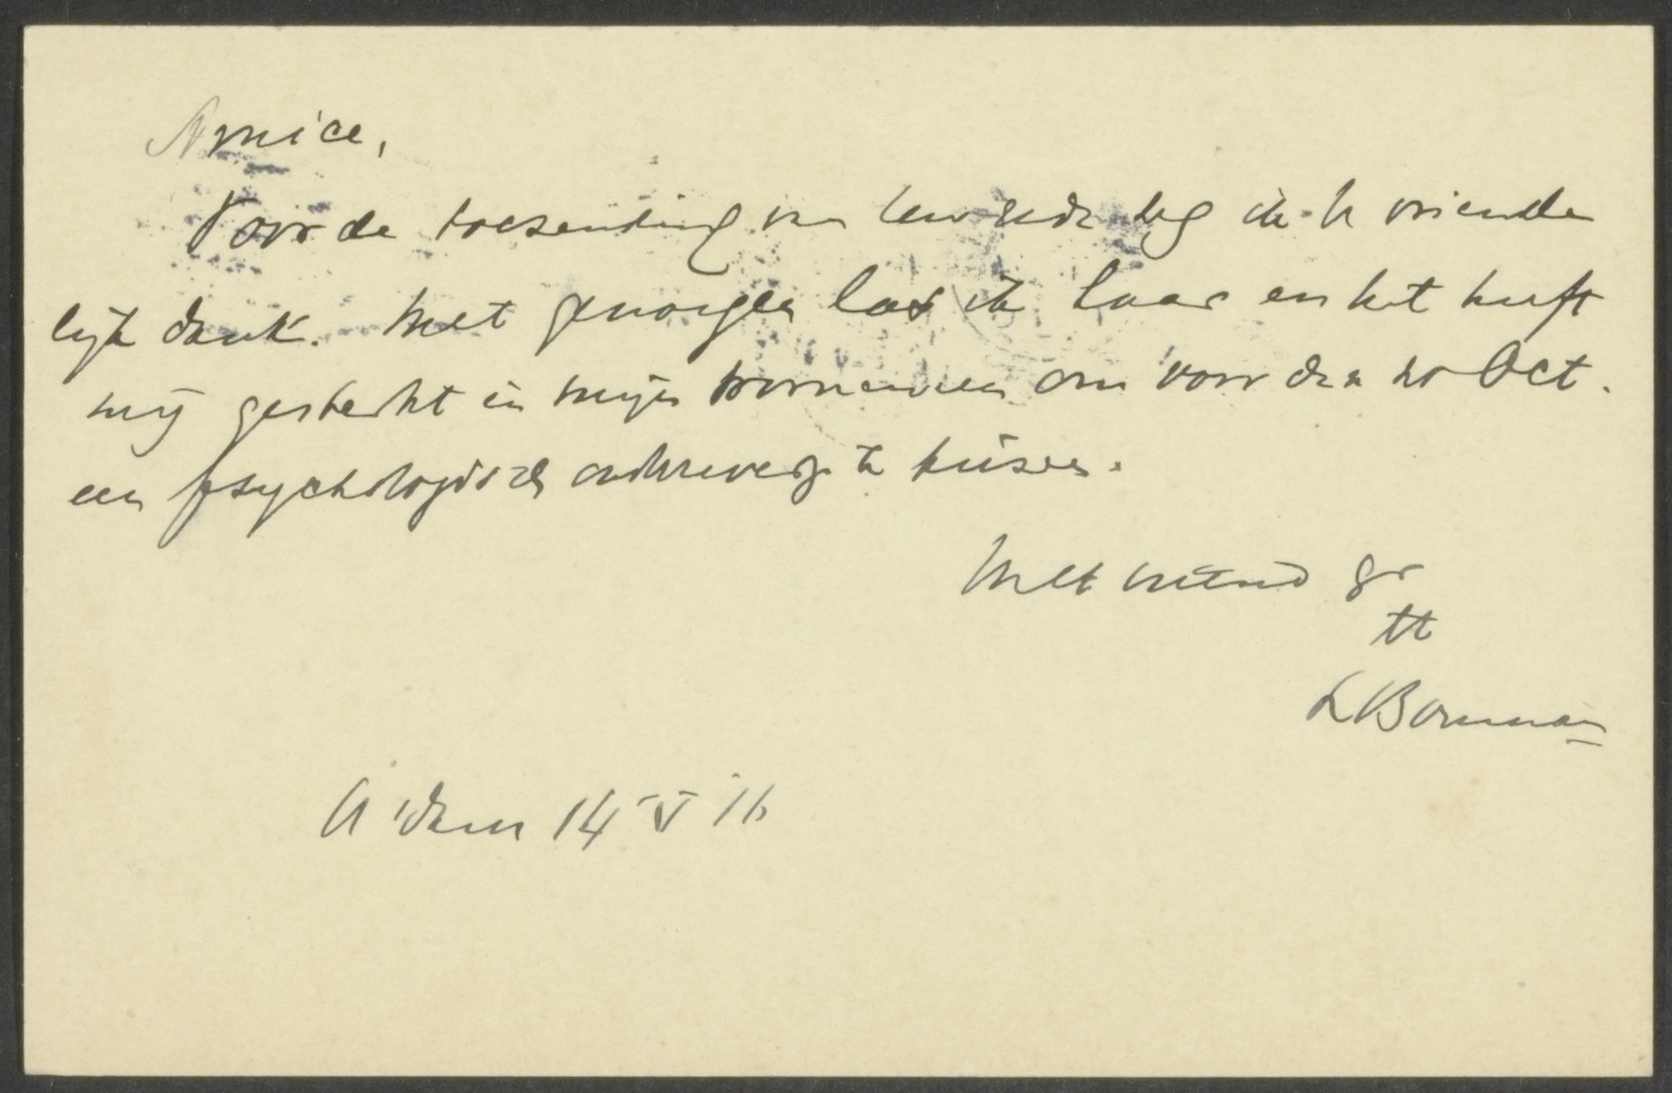 Amice,
Voor de toezending van Uw rede zeg ik U vriende
lijk dank. Met genoegen las ik haar en het heeft
mij gesterkt in mijn voornemen om voor den 20 Oct.
een psychologisch onderwerp te kiezen.
Met vriend gr
tt
LBouman
A'dam 14 V 16